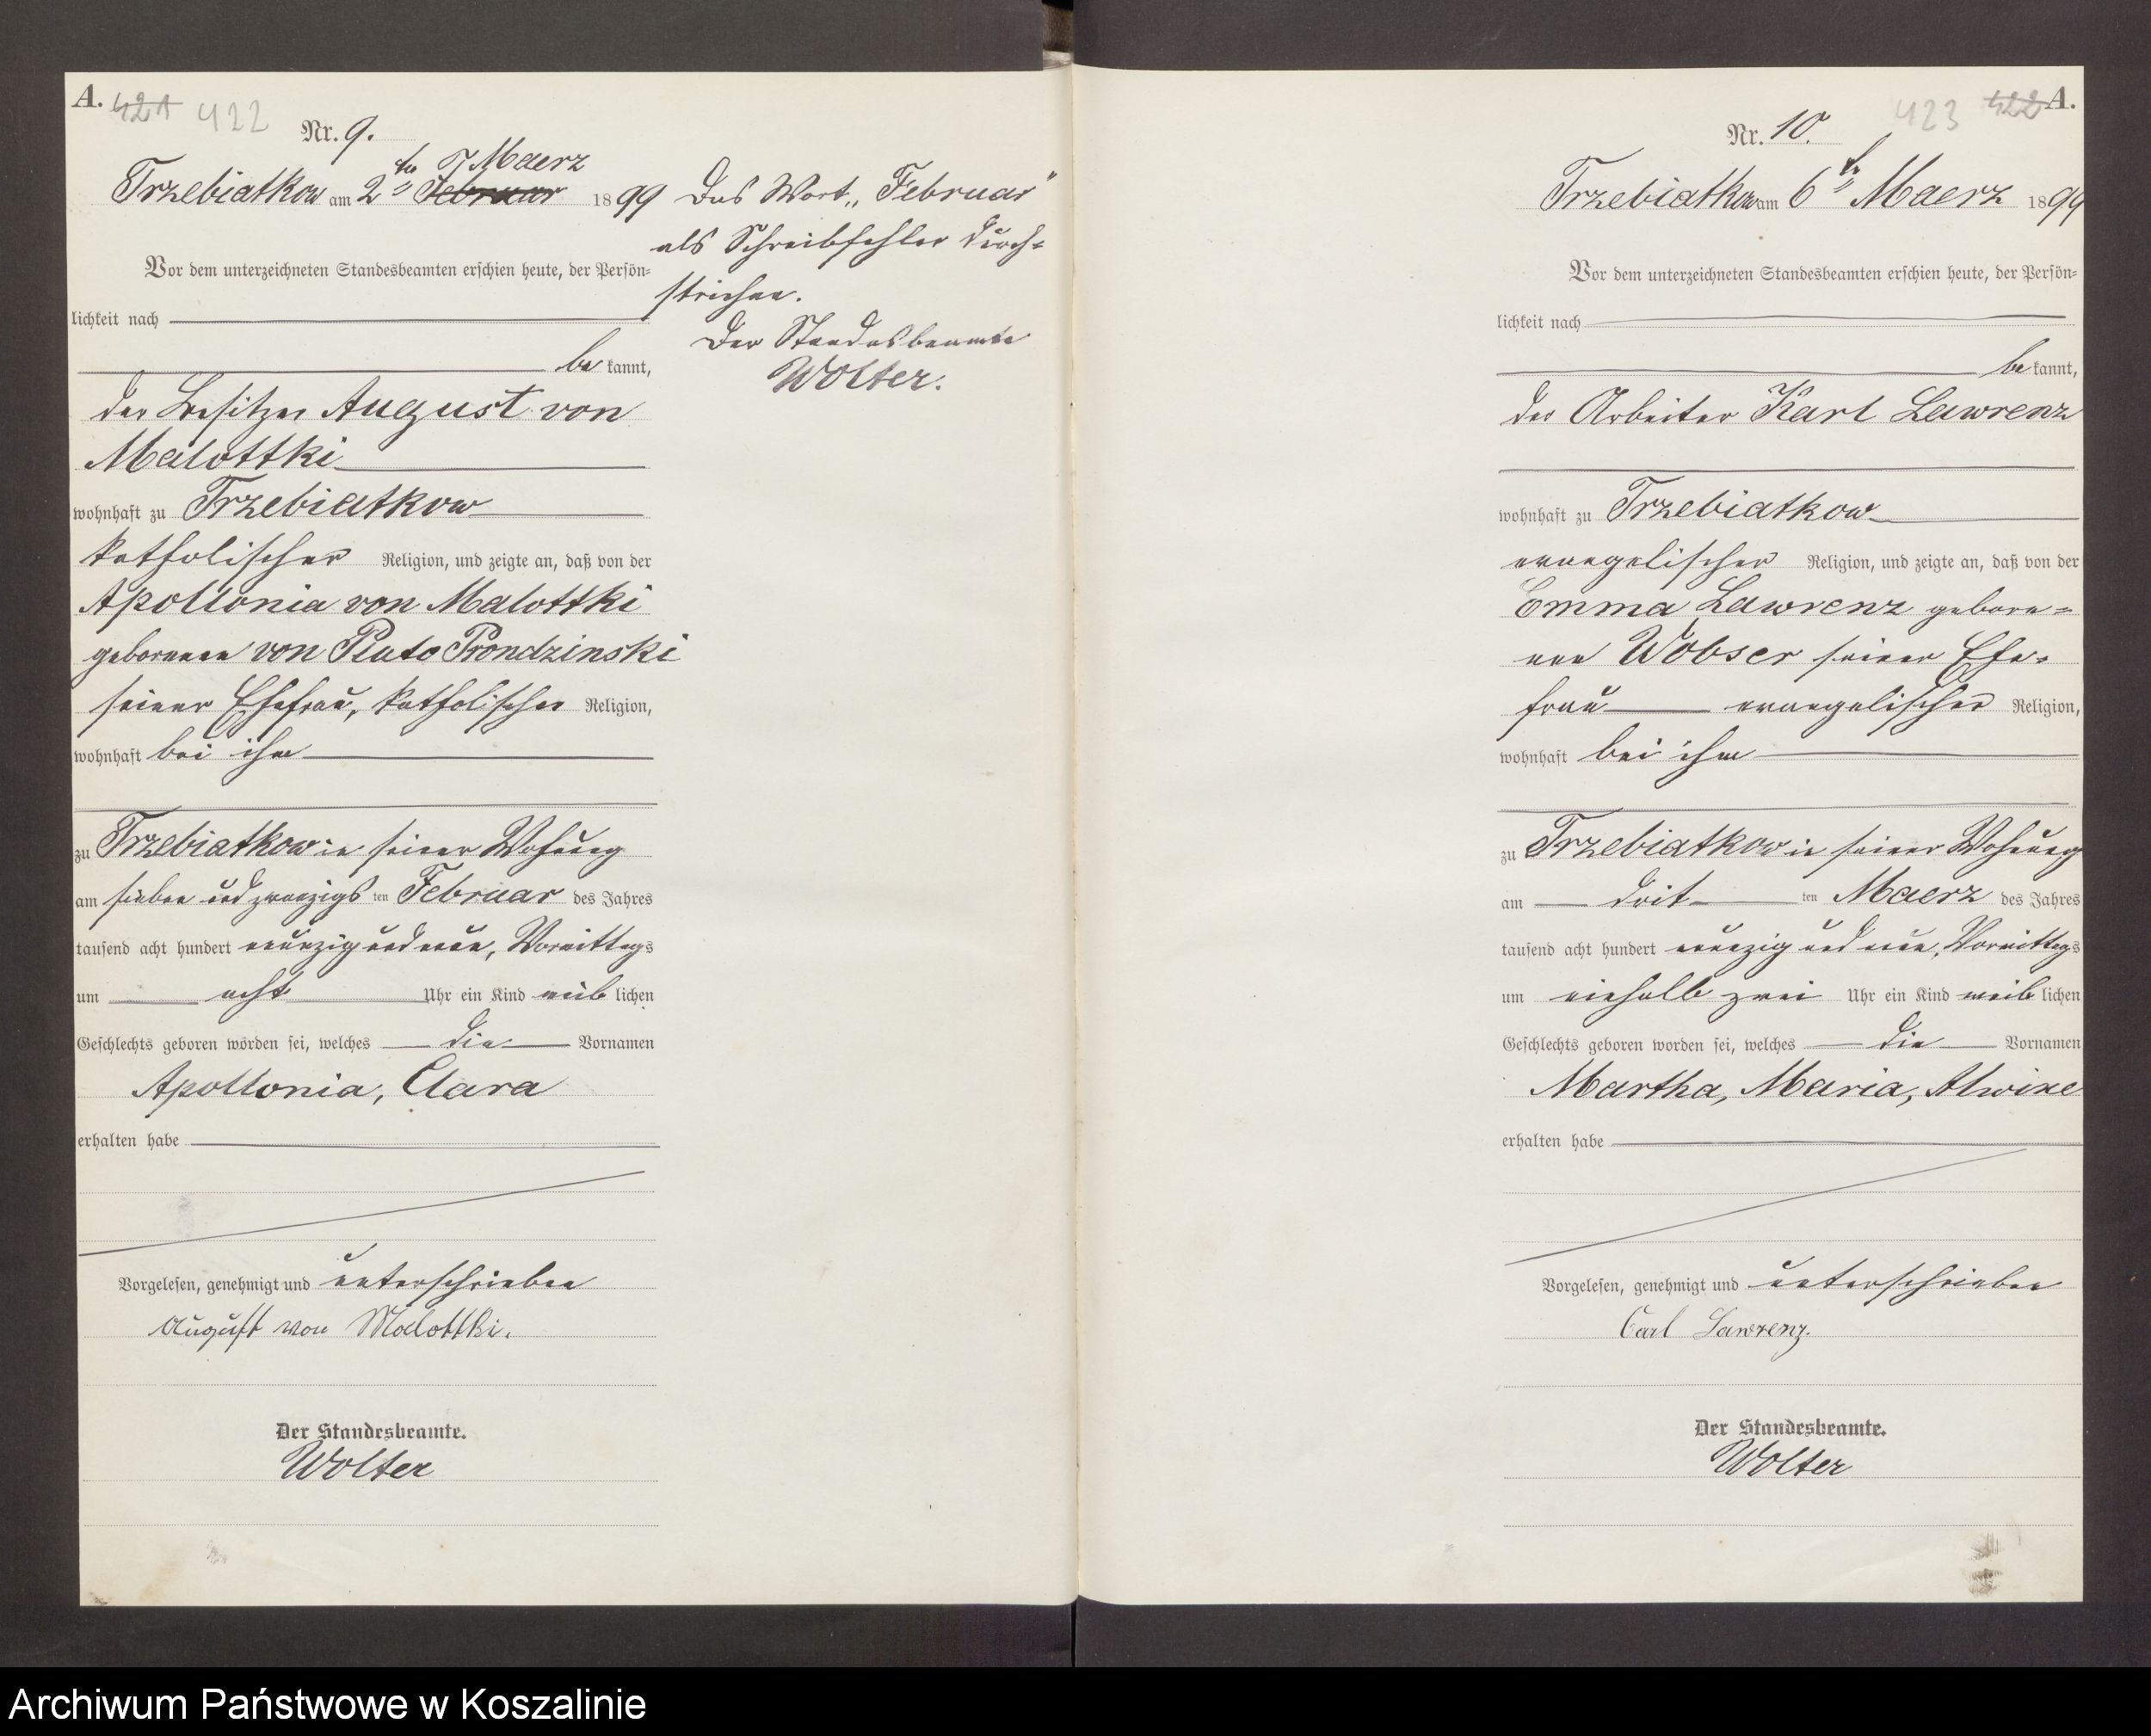 A.
421 422
Nr. 9.
Trzebiatkow am 2ten Februar Maerz 1899
Vor dem unterzeichneten Standesbeamten erschien heute, der Persön=
lichkeit nach
be kannt,
der Besitzer August von
Malottki
wohnhaft zu Trzebiatkow
katholischer Religion, und zeigte an, daß von der
Apollonia von Malottki
geborenen von Pluto Prondzinski
seiner Ehefrau, katholischer Religion,
wohnhaft bei ihm
zu Trzebiatkow in seiner Wohnung
am sieben und zwanzigs ten Februar des Jahres
tausend acht hundert neunzig und neun, Vormittags
um acht Uhr ein Kind weib lichen
Geschlechts geboren worden sei, welches die Vornamen
Apollonia, Clara
erhalten habe
Vorgelesen, genehmigt und unterschrieben
August von Malottki.
Der Standesbeamte.
Wolter
Das Wort „Februar"
als Schreibfehler durch=
strichen.
Der Standesbeamte
Wolter.
423 422 A.
Nr. 10.
Trzebiatkow am 6ten Maerz 1899
Vor dem unterzeichneten Standesbeamten erschien heute, der Persön=
lichkeit nach
be kannt,
der Arbeiter Karl Lawrenz
wohnhaft zu Trzebiatkow
evangelischer Religion, und zeigte an, daß von der
Emma Lawrenz gebore=
nen Wobser seiner Ehe=
frau evangelischer Religion,
wohnhaft bei ihm
zu Trzebiatkow in seiner Wohnung
am drit ten Maerz des Jahres
tausend acht hundert neunzig und neun, Vormittags
um einhalb zwei Uhr ein Kind weib lichen
Geschlechts geboren worden sei, welches die Vornamen
Martha, Maria, Alwine
erhalten habe
Vorgelesen, genehmigt und unterschrieben
Carl Lawrenz.
Der Standesbeamte.
Wolter
Archiwum Państwowe w Koszalinie